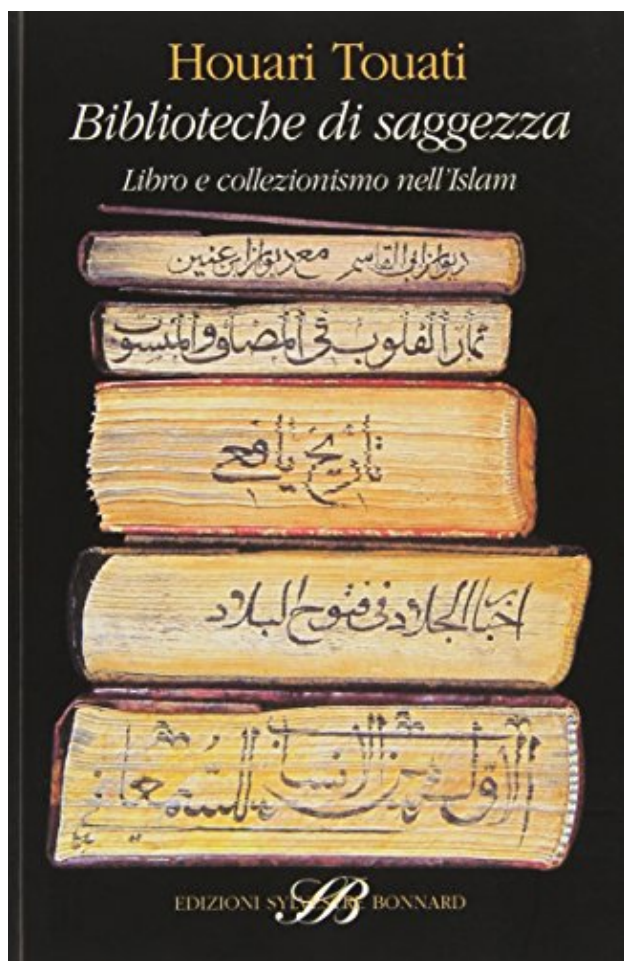 Houari Touati
Biblioteche di saggezza
Libro e collezionismo nell'Islam
ديوان ابي القاسم مع ديوان ابن عنين
ثمار القلوب في المضاف والمنسوب
تاريخ يافعي
اخبار الجلاد في فتوح البلاد
الاول من الانساب للسمعاني
EDIZIONI SYLVESTRE BONNARD
SB